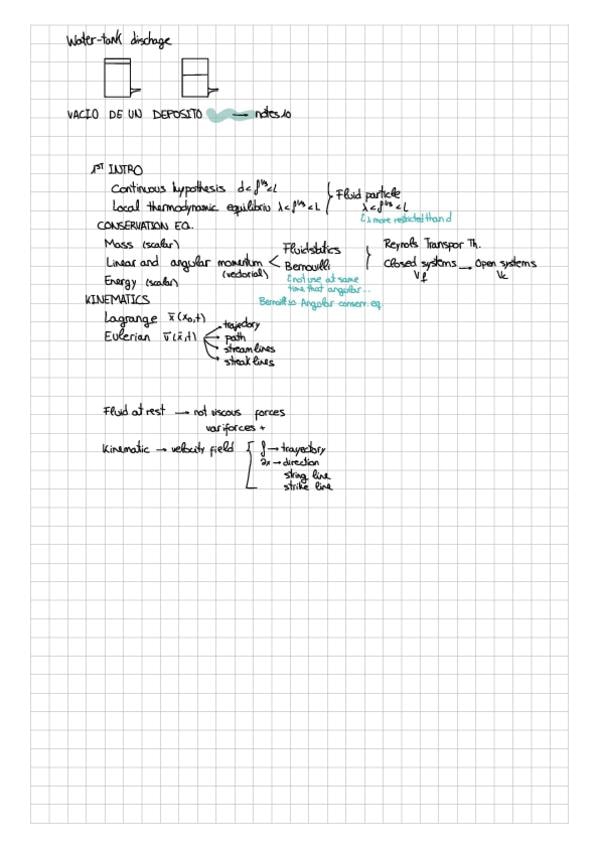 Water-tank dischage
VACIO DE UN DEPOSITO → notes 10
1ST INTRO
Continuous hypothesis d < ∫^1/3 < L
Local thermodynamic equilibriu λ < ∫^1/3 < L
Fluid particle
λ < ∫^1/3 < L
is more restricted than d
CONSERVATION EQ.
Mass (scalar)
Linear and angular momentum < Fluidstatics
(vectorial) Bernouilli
Energy (scalar)
not use at same
time that angular...
Bernoilli so Angular conserv. eq.
Reynols Transpor Th.
Closed systems → Open systems
Vf Vc
KINEMATICS
Lagrange x̄(x₀,t)
Eulerian v̄(x̄,t)
trajectory
path
stream lines
streak lines
Fluid at rest → not viscous forces
var forces +
Kinematic → velocity field
∫ → trayectory
∂x → direction
string line
strike line